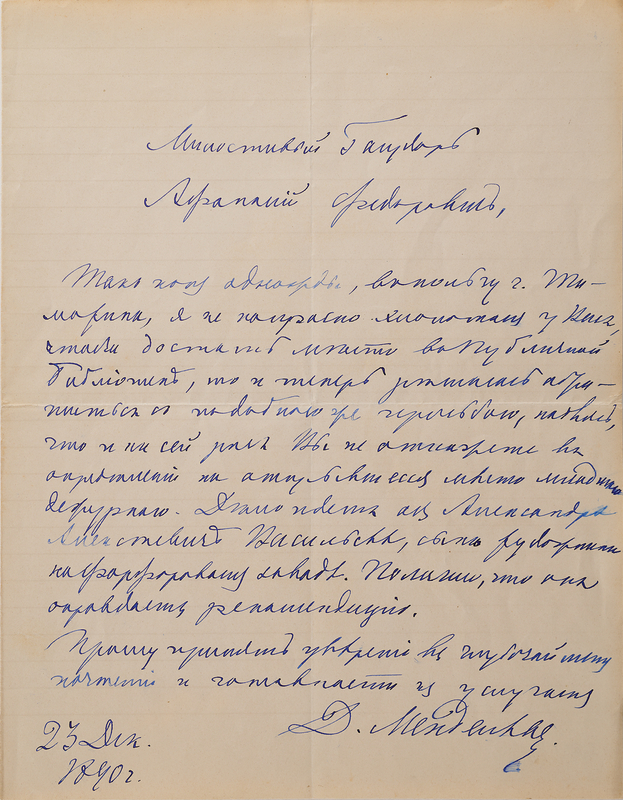 Милостивый Государь
Афанасий Федорович,
Такъ какъ однажды, въ пользу г. Ти-
морина, я не напрасно хлопоталъ у Васъ,
чтобы достать мѣсто въ Публичной
Библіотекѣ, то и теперь рѣшаюсь обра-
титься съ подобною же просьбою, надѣясь,
что и на сей разъ Вы не откажете въ
опредѣленіи на открывшееся мѣсто младшаго
дежурнаго. Дѣло идетъ объ Александрѣ
Алексѣевичѣ Васильевѣ, сынѣ художника
на фарфоровомъ заводѣ. Полагаю, что онъ
оправдаетъ рекомендацію.
Прошу принять увѣреніе въ глубочайшемъ
почтеніи и готовности къ услугамъ
Д. Менделѣевъ.
23 Дек.
1890 г.